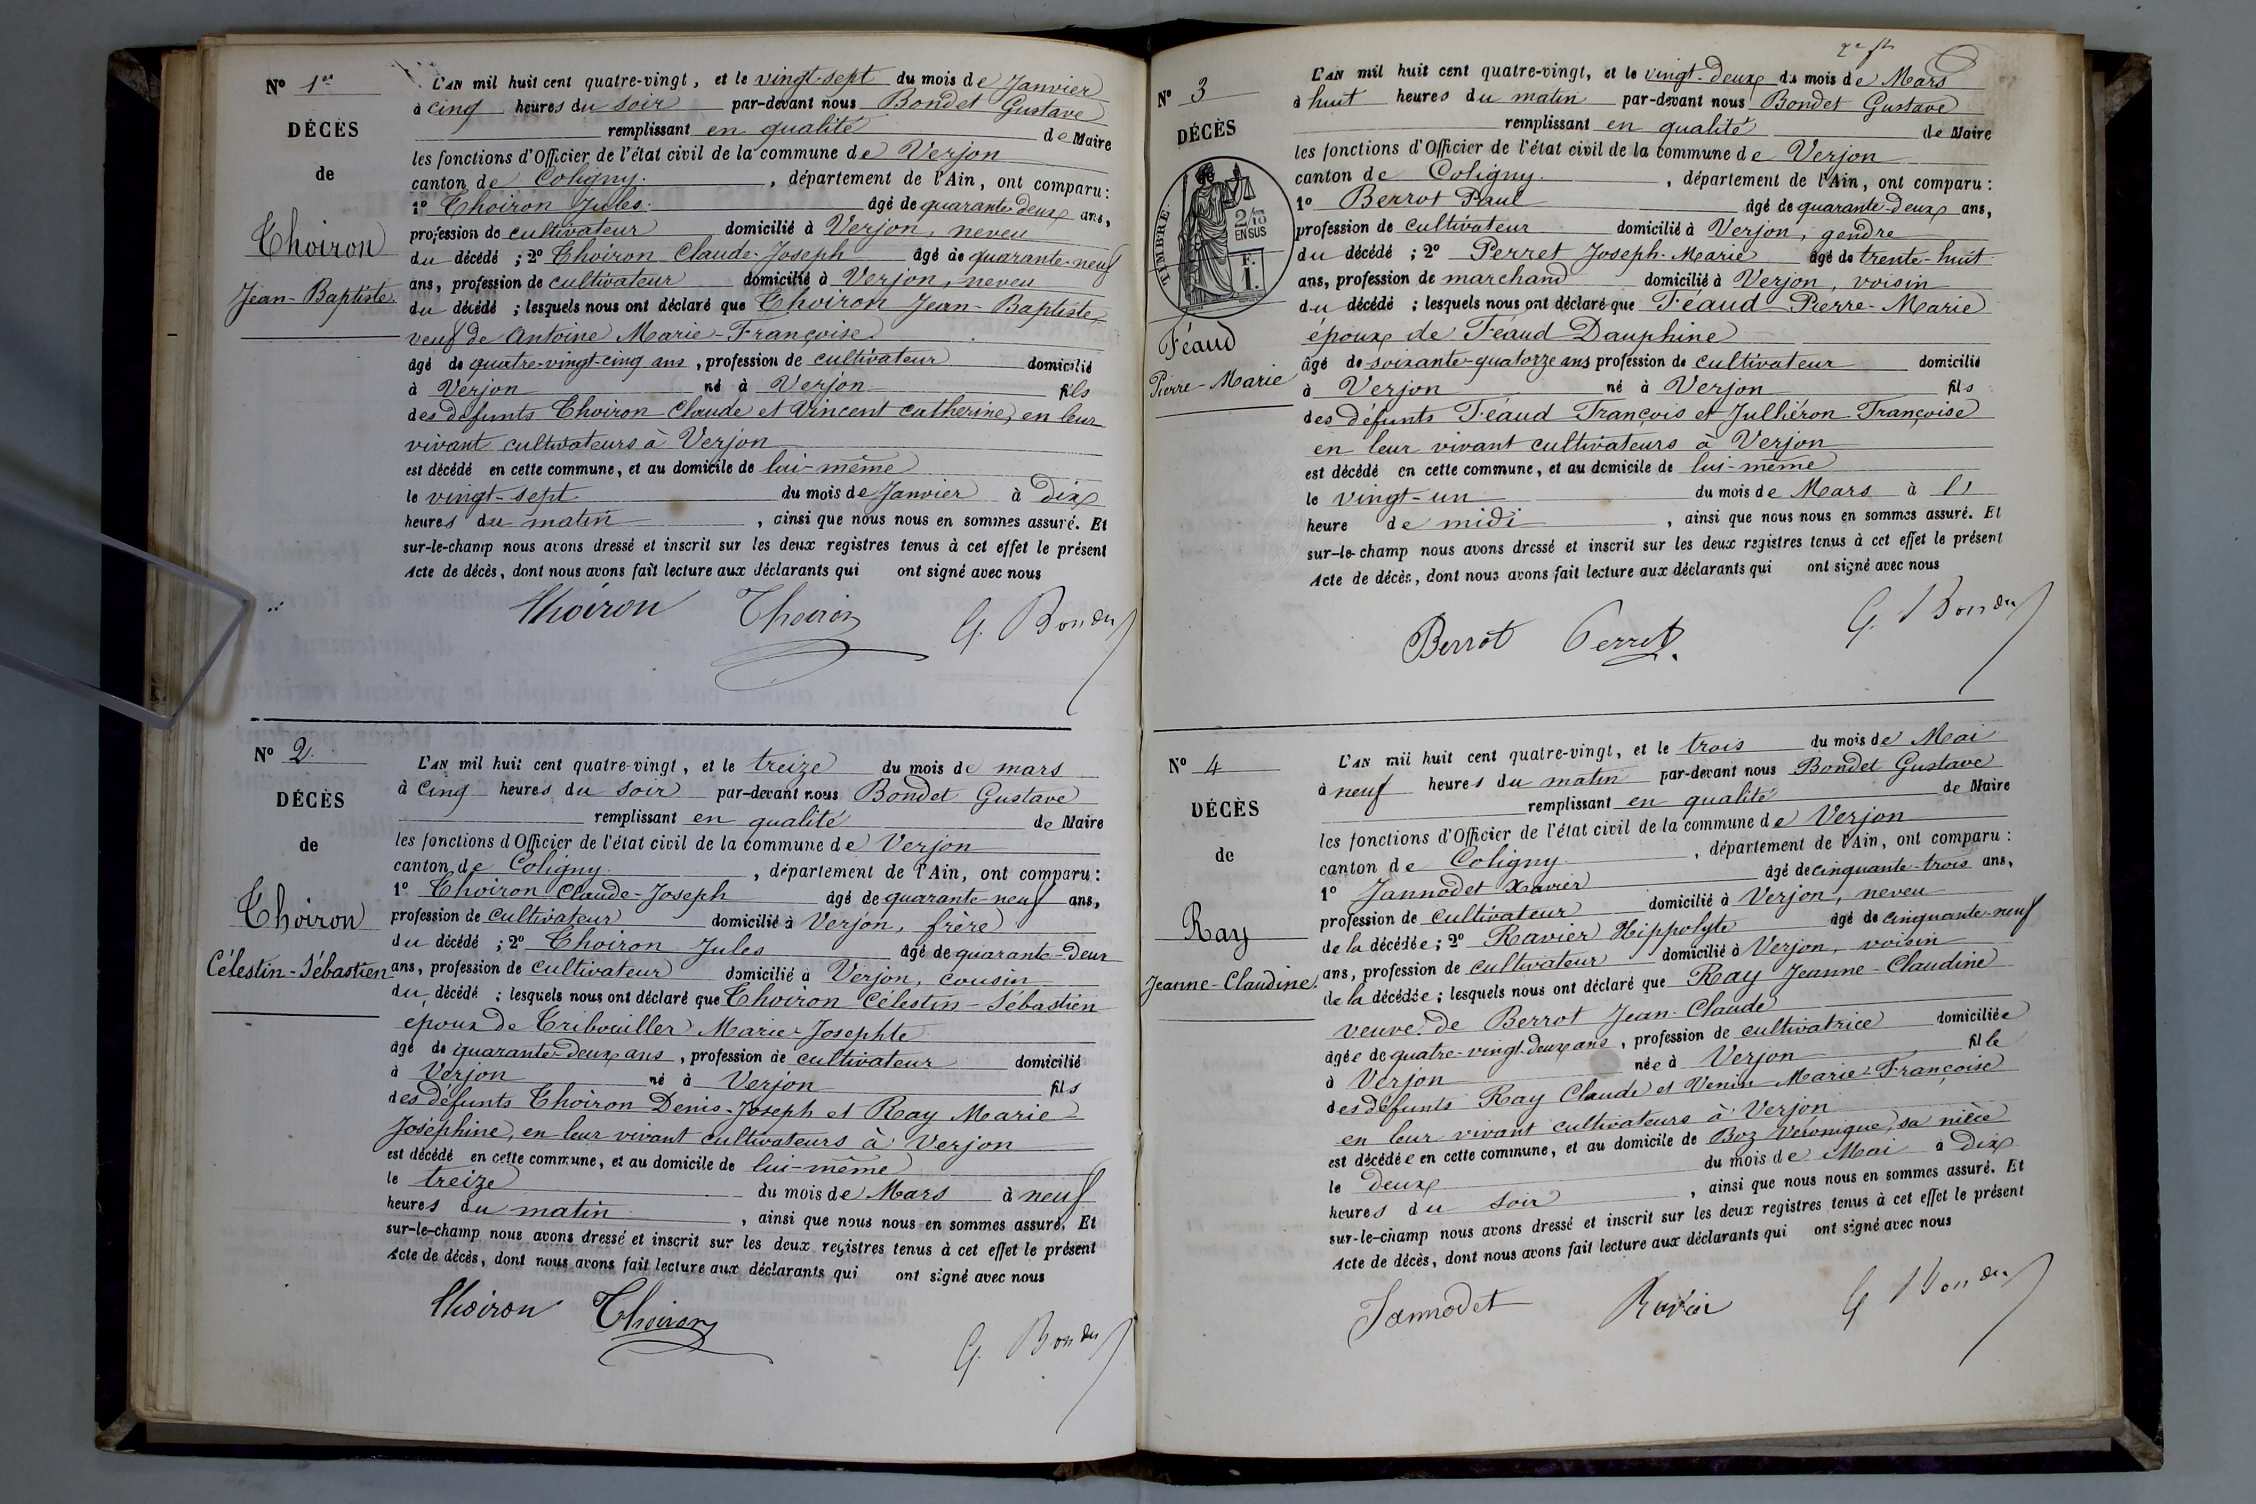 N° 1er
DÉCÈS
de
Thoiron
Jean-Baptiste.
L'AN mil huit cent quatre-vingt, et le vingt-sept du mois de Janvier
à cinq heures du soir par-devant nous Bondet Gustave
remplissant en qualité de Maire
les fonctions d'Officier de l'état civil de la commune de Verjon
canton de Coligny. , département de l'Ain, ont comparu :
1° Thoiron Jules. âgé de quarante-deux ans,
profession de cultivateur domicilié à Verjon, neveu
du décédé ; 2° Thoiron Claude-Joseph âgé de quarante-neuf
ans, profession de cultivateur domicilié à Verjon, neveu
du décédé ; lesquels nous ont déclaré que Thoiron Jean-Baptiste
veuf de Antoine Marie-Françoise
âgé de quatre-vingt-cinq ans, profession de cultivateur domicilié
à Verjon né à Verjon fils
des défunts Thoiron Claude et Vincent Catherine, en leur
vivant cultivateurs à Verjon
est décédé en cette commune, et au domicile de lui-même
le vingt-sept du mois de Janvier à dix
heures du matin , ainsi que nous nous en sommes assuré. Et
sur-le-champ nous avons dressé et inscrit sur les deux registres tenus à cet effet le présent
Acte de décès, dont nous avons fait lecture aux déclarants qui ont signé avec nous
Thoiron Thoiron G. Bondet
N° 2.
DÉCÈS
de
Thoiron
Célestin-Sébastien
L'AN mil huit cent quatre-vingt, et le treize du mois de mars
à cinq heures du soir par-devant nous Bondet Gustave
remplissant en qualité de Maire
les fonctions d'Officier de l'état civil de la commune de Verjon
canton de Coligny , département de l'Ain, ont comparu :
1° Thoiron Claude-Joseph âgé de quarante-neuf ans,
profession de cultivateur domicilié à Verjon, frère
du décédé ; 2° Thoiron Jules âgé de quarante-deux
ans, profession de cultivateur domicilié à Verjon, cousin
du décédé ; lesquels nous ont déclaré que Thoiron Célestin-Sébastien
époux de Tribouiller Marie-Josephte
âgé de quarante-deux ans, profession de cultivateur domicilié
à Verjon né à Verjon fils
des défunts Thoiron Denis-Joseph et Ray Marie
Joséphine, en leur vivant cultivateurs à Verjon
est décédé en cette commune, et au domicile de lui-même
le treize du mois de Mars à neuf
heures du matin , ainsi que nous nous en sommes assuré. Et
sur-le-champ nous avons dressé et inscrit sur les deux registres tenus à cet effet le présent
Acte de décès, dont nous avons fait lecture aux déclarants qui ont signé avec nous
Thoiron Thoiron G. Bondet
N° 3
DÉCÈS
TIMBRE.
2/10
EN SUS
F.
1.
Féaud
Pierre-Marie
L'AN mil huit cent quatre-vingt, et le vingt-deux du mois de Mars
à huit heures du matin par-devant nous Bondet Gustave
remplissant en qualité de Maire
les fonctions d'Officier de l'état civil de la commune de Verjon
canton de Coligny. , département de l'Ain, ont comparu :
1° Berrot Paul âgé de quarante-deux ans,
profession de cultivateur domicilié à Verjon, gendre
du décédé ; 2° Perret Joseph-Marie âgé de trente-huit
ans, profession de marchand domicilié à Verjon, voisin
du décédé ; lesquels nous ont déclaré que Féaud Pierre-Marie
époux de Féaud Dauphine
âgé de soixante-quatorze ans profession de cultivateur domicilié
à Verjon né à Verjon fils
des défunts Féaud François et Julliéron Françoise
en leur vivant cultivateurs à Verjon
est décédé en cette commune, et au domicile de lui-même
le vingt-un du mois de Mars à l'
heure de midi , ainsi que nous nous en sommes assuré. Et
sur-le-champ nous avons dressé et inscrit sur les deux registres tenus à cet effet le présent
Acte de décès, dont nous avons fait lecture aux déclarants qui ont signé avec nous
Berrot Perret G. Bondet
N° 4
DÉCÈS
de
Ray
Jeanne-Claudine.
L'AN mil huit cent quatre-vingt, et le trois du mois de Mai
à neuf heures du matin par-devant nous Bondet Gustave
remplissant en qualité de Maire
les fonctions d'Officier de l'état civil de la commune de Verjon
canton de Coligny , département de l'Ain, ont comparu :
1° Jannodet Xavier âgé de cinquante-trois ans,
profession de cultivateur domicilié à Verjon, neveu
de la décédée ; 2° Ravier Hippolyte âgé de cinquante-neuf
ans, profession de cultivateur domicilié à Verjon, voisin
de la décédée ; lesquels nous ont déclaré que Ray Jeanne-Claudine
veuve de Berrot Jean-Claude
âgée de quatre-vingt-deux ans, profession de cultivatrice domiciliée
à Verjon née à Verjon fille
des défunts Ray Claude et Venin Marie-Françoise
en leur vivant cultivateurs à Verjon
est décédée en cette commune, et au domicile de Boz Véronique, sa nièce
le deux du mois de Mai à dix
heures du soir , ainsi que nous nous en sommes assuré. Et
sur-le-champ nous avons dressé et inscrit sur les deux registres tenus à cet effet le présent
Acte de décès, dont nous avons fait lecture aux déclarants qui ont signé avec nous
Jannodet Ravier G Bondet